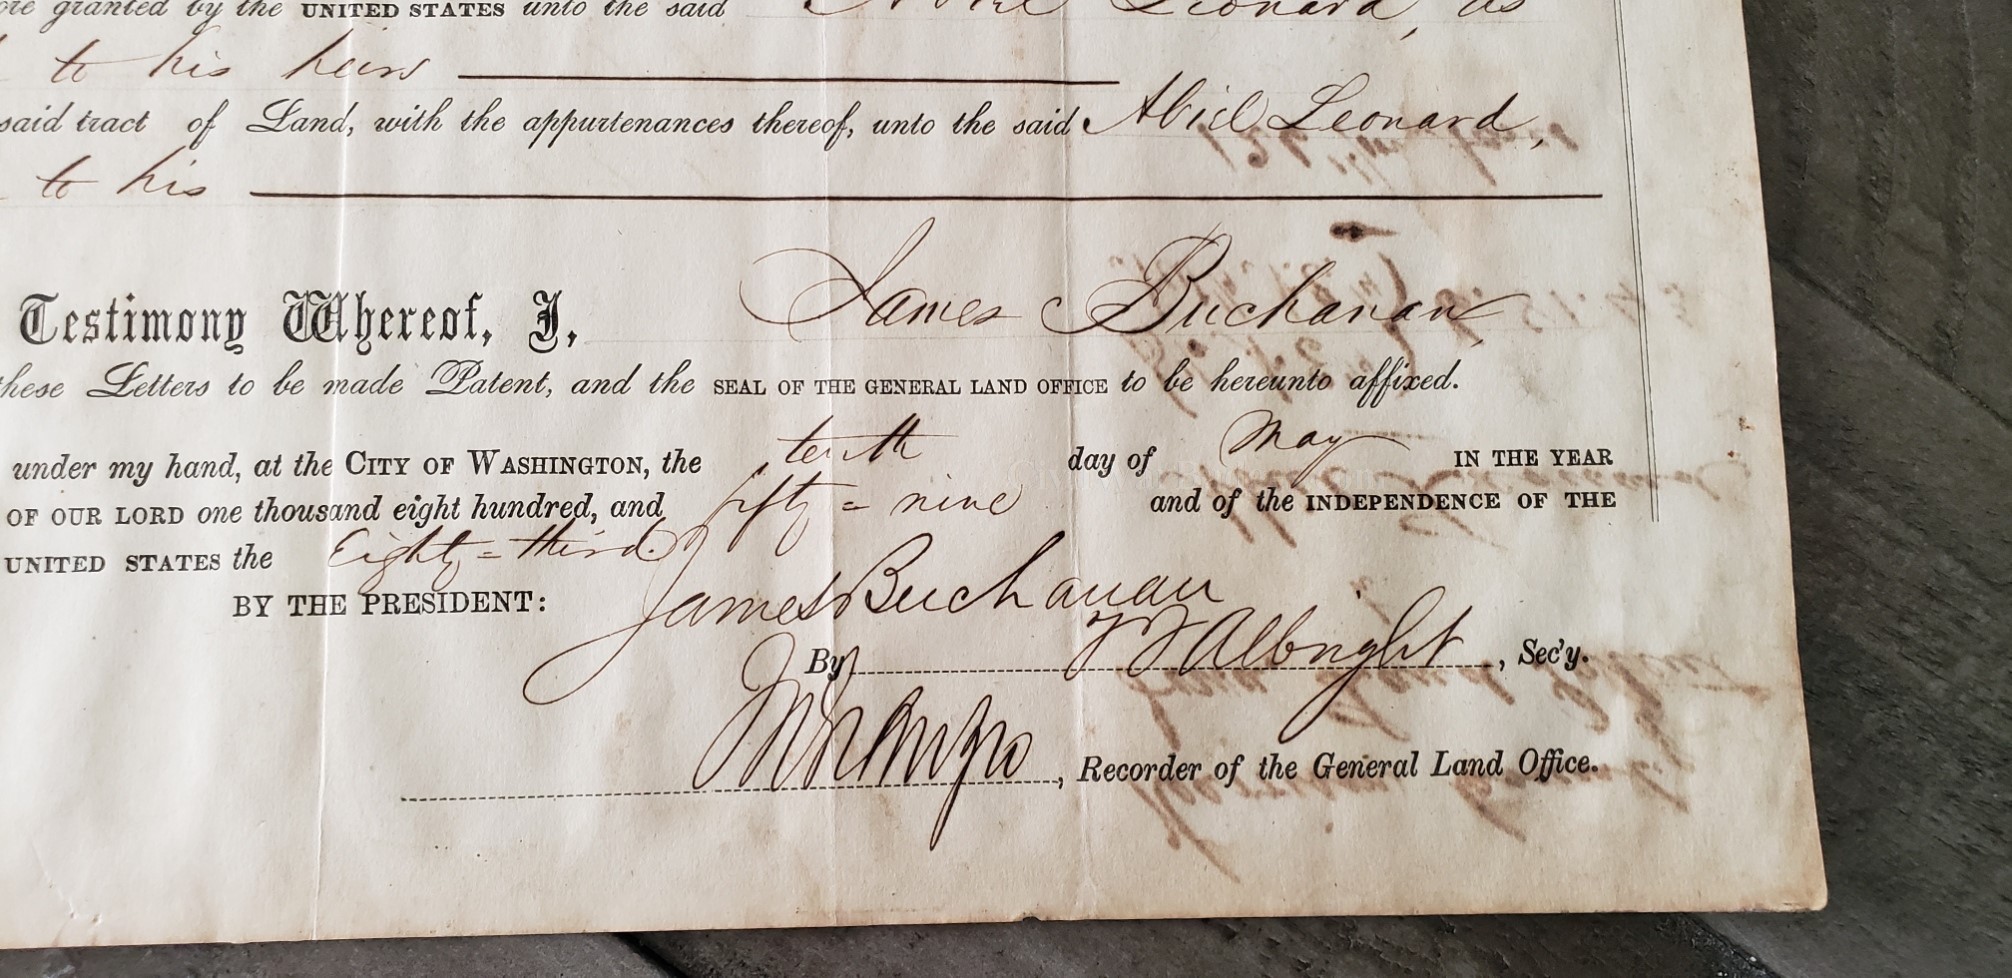 granted by the UNITED STATES unto the said Abiel Leonard, as
to his heirs
said tract of Land, with the appurtenances thereof, unto the said Abiel Leonard,
to his
Testimony Whereof, I, James Buchanan,
these Letters to be made Patent, and the SEAL OF THE GENERAL LAND OFFICE to be hereunto affixed.
under my hand, at the CITY OF WASHINGTON, the tenth day of May IN THE YEAR
OF OUR LORD one thousand eight hundred, and fifty=nine and of the INDEPENDENCE OF THE
UNITED STATES the Eighty=third.
BY THE PRESIDENT: James Buchanan
By Albright, Sec'y.
, Recorder of the General Land Office.